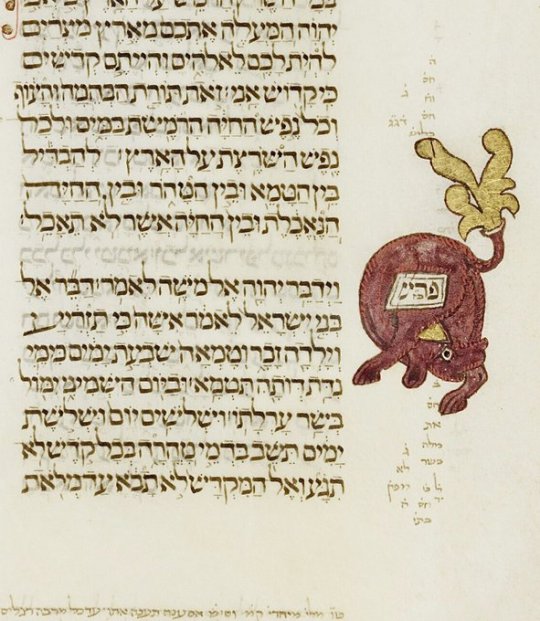 יהוה המעלה אתכם מארץ מצרים
להית לכם לאלהים והייתם קדשים
כי קדוש אני זאת תורת הבהמה והעוף
וכל נפש החיה הרמשת במים ולכל
נפש השרצת על הארץ להבדיל
בין הטמא ובין הטהר ובין החיה
הנאכלת ובין החיה אשר לא תאכל
וידבר יהוה אל משה לאמר דבר אל
בני ישראל לאמר אשה כי תזריע
וילדה זכר וטמאה שבעת ימים כימי
נדת דותה תטמא וביום השמיני ימול
בשר ערלתו ושלשים יום ושלשת
ימים תשב בדמי טהרה בכל קדש לא
תגע ואל המקדש לא תבא עד מלאת
פרש